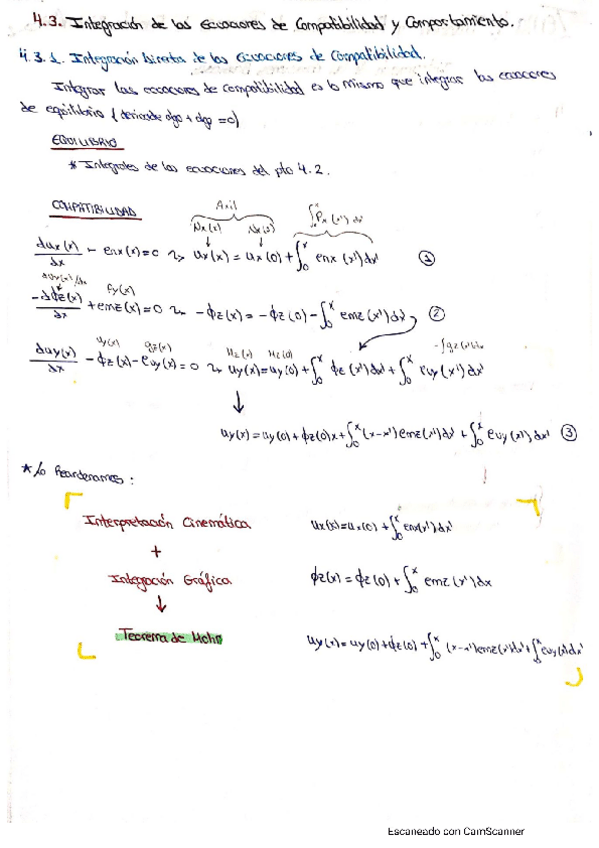 4.3. Integración de las Ecuaciones de Compatibilidad y Comportamiento.
4.3.1. Integración Directa de las Ecuaciones de Compatibilidad.
Integrar las ecuaciones de compatibilidad es lo mismo que integrar las ecuaciones
de equilibrio ( derivada algo + algo =0)
EQUILIBRIO
* Integrales de las ecuaciones del pto 4.2.
COMPATIBILIDAD
Axil
Nx(x) Nx(0) ∫₀ˣ Px(x')dx'
dux(x)/dx - enx(x)=0 ux(x) = ux(0) + ∫₀ˣ enx(x')dx' ①
fy(x)
-dϕz(x)/dx + emz(x)=0 -ϕz(x) = -ϕz(0) - ∫₀ˣ emz(x')dx' ②
vy(x) gz(x) Mz(x) Mz(0)
duy(x)/dx - ϕz(x) - evy(x)=0 uy(x)=uy(0) + ∫₀ˣ ϕz(x')dx' + ∫₀ˣ evy(x')dx'
↓
uy(x)=uy(0)+ϕz(0)x+∫₀ˣ(x-x')emz(x')dx' + ∫₀ˣ evy(x')dx' ③
* Lo Reordenamos:
Interpretación Cinemática ux(x)=ux(0) + ∫₀ˣ enx(x')dx'
+
Integración Gráfica ϕz(x) = ϕz(0) + ∫₀ˣ emz(x')dx
↓
Teorema de Mohr uy(x)=uy(0)+ϕz(0)+∫₀ˣ (x-x')emz(x')dx'+∫₀ˣ evy(x')dx'
Escaneado con CamScanner